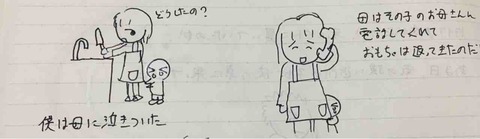 どうしたの?
僕は母に泣きついた
母はその子のお母さんに
電話してくれて
おもちゃは返ってきたのだ